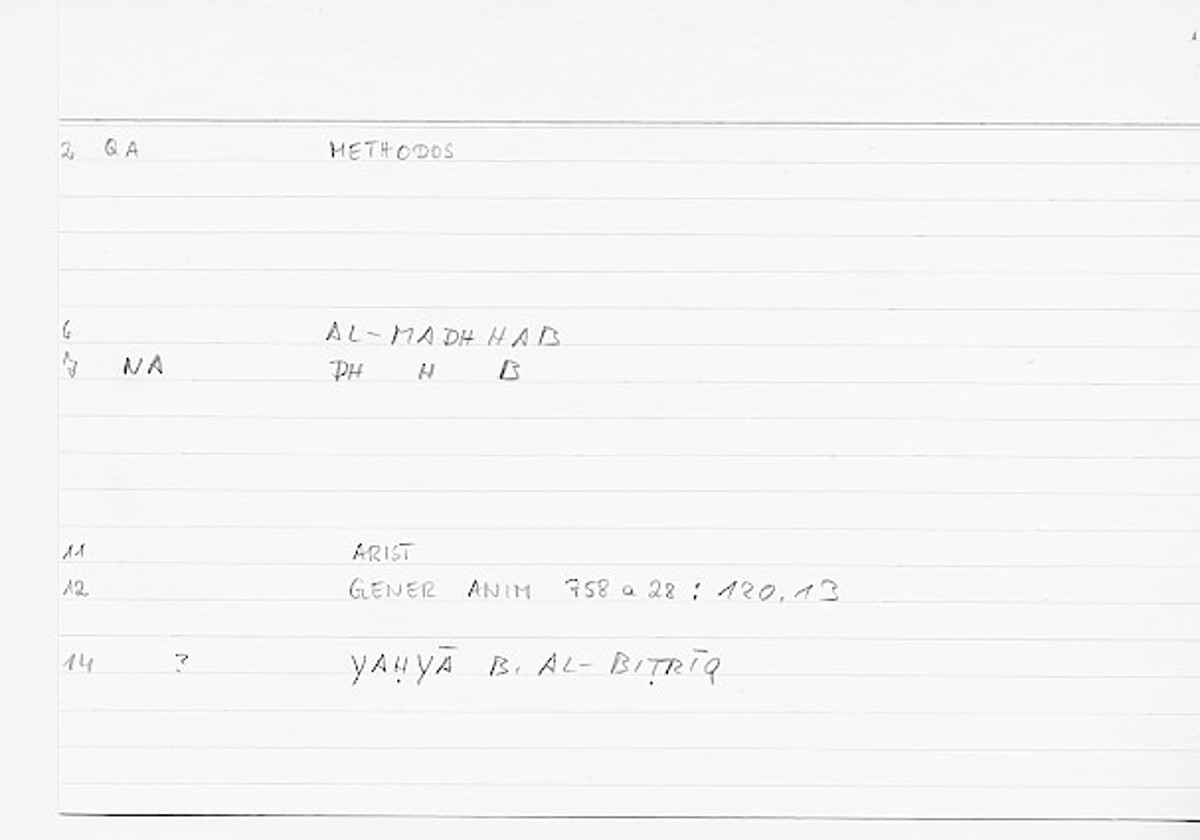 2 QA METHODOS
6 AL-MADHHAB
7 NA DH H B
11 ARIST
12 GENER ANIM 758 a 28 : 120.13
14 ? YAḤYĀ B. AL-BIṬRĪQ